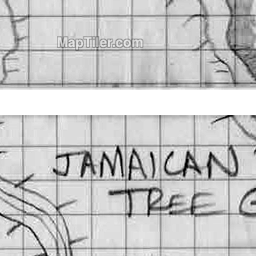 MapTiler.com
JAMAICAN
TREE